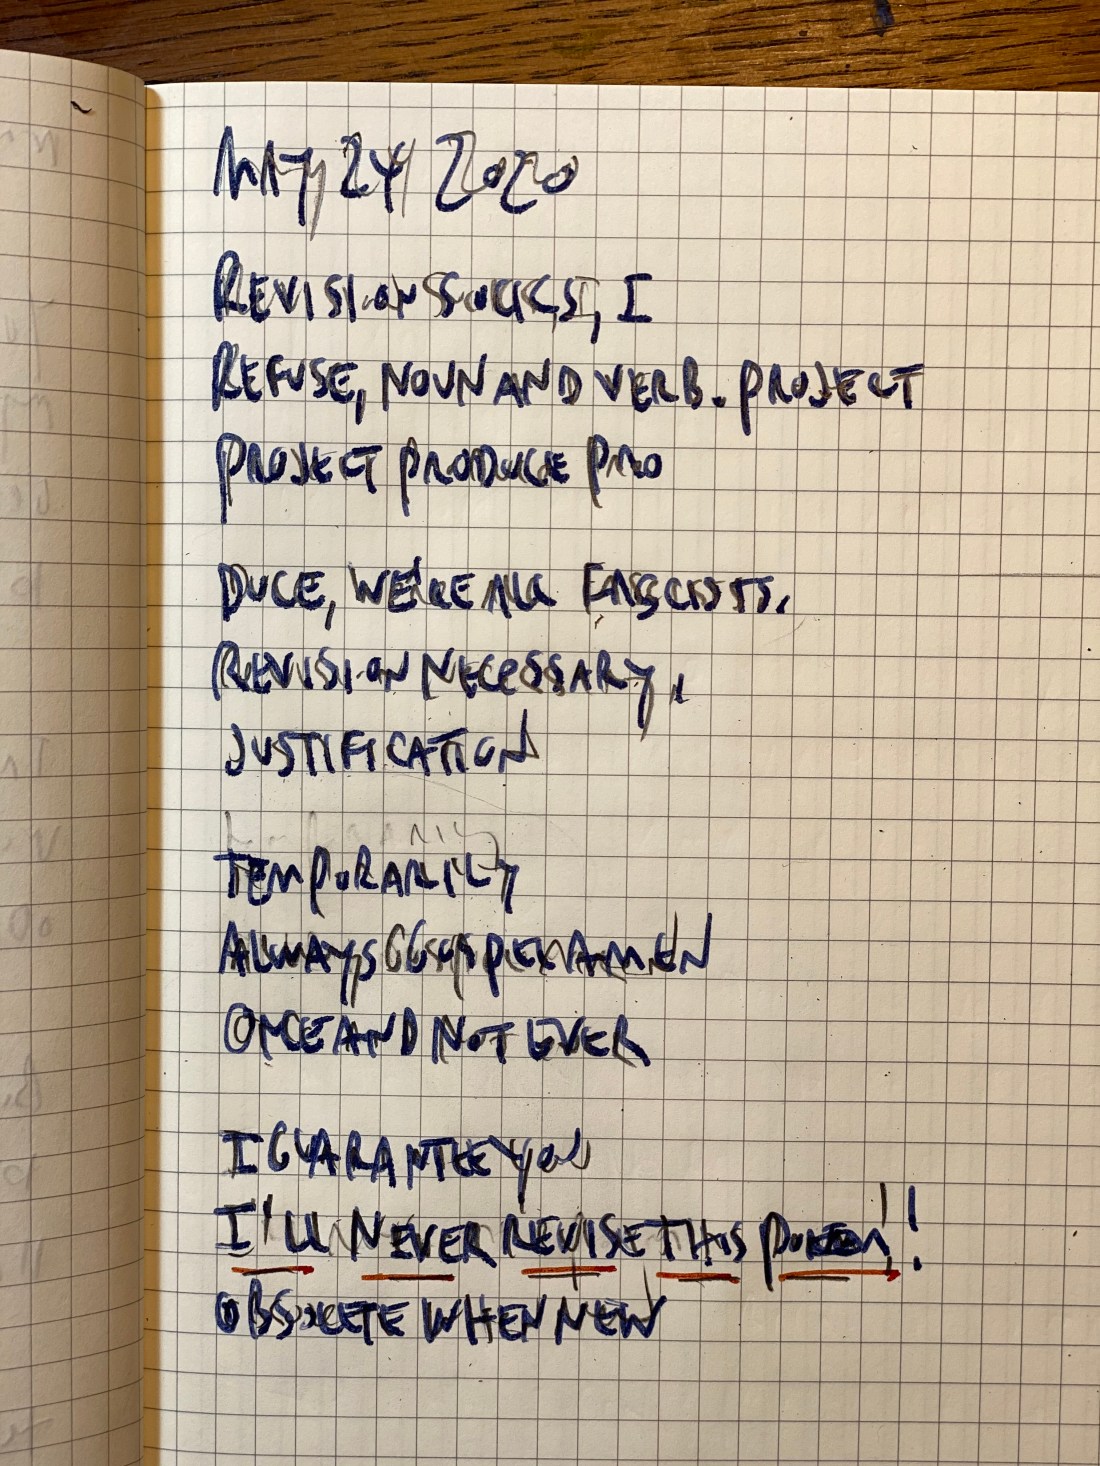 MAY 24 2020
REVISION SUCKS, I
REFUSE, NOUN AND VERB. PROJECT
PROJECT PRODUCE PRO
DUCE, WE'RE ALL FASCISTS.
REVISION NECESSARY,
JUSTIFICATION
TEMPORARILY
ALWAYS
ONCE AND NOT EVER
I GUARANTEE YOU
I'LL NEVER REVISE THIS POEM!
OBSOLETE WHEN NEW